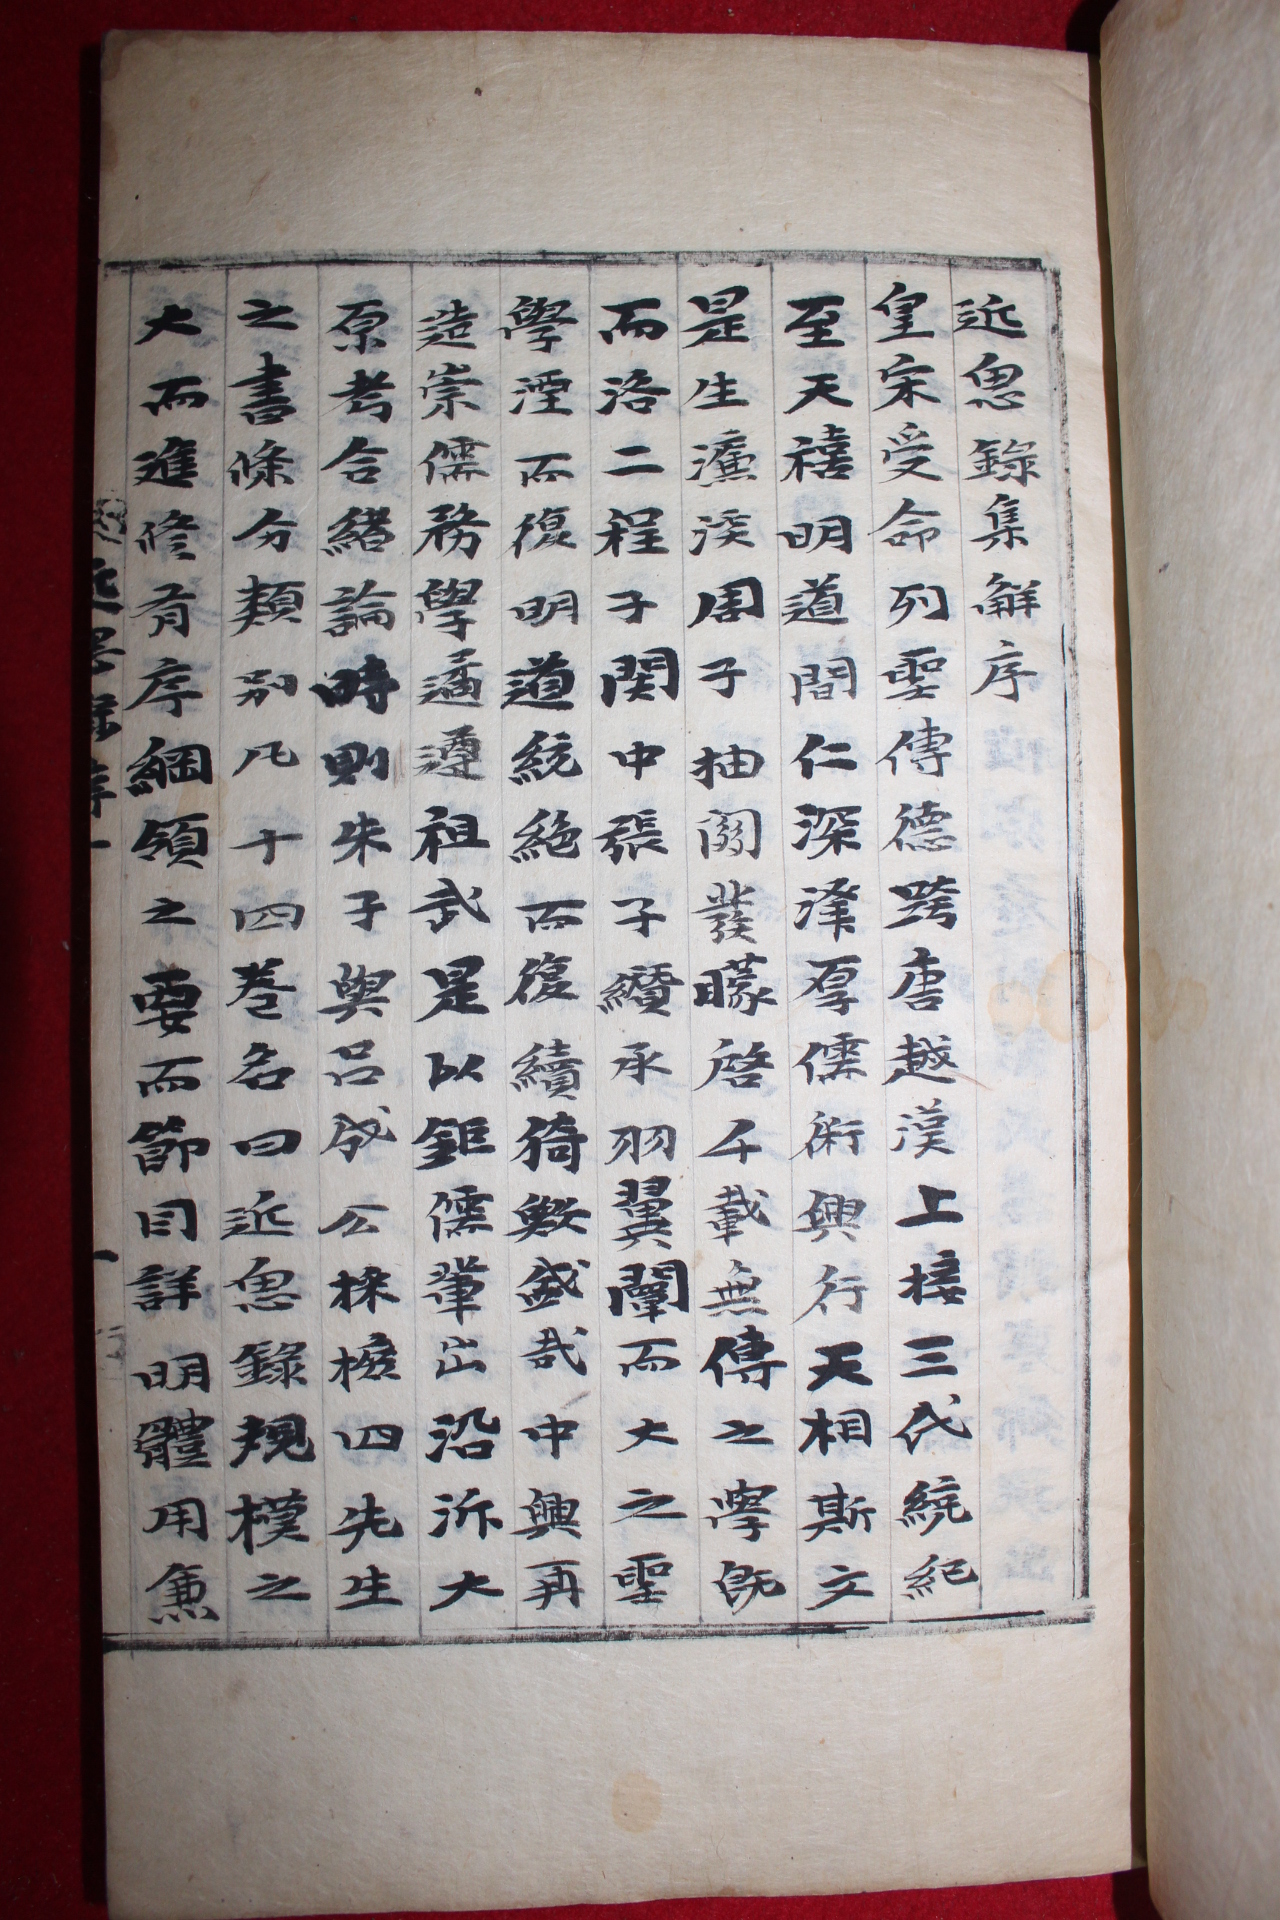 近思錄集解序
皇宋受命列聖傳德跨唐越漢上接三代統紀
至天禧明道間仁深澤厚儒術興行天相斯文
是生濂溪周子抽關發矇啓千載無傳之學旣
而洛二程子関中張子纘承羽翼闡而大之聖
學湮而復明道統絶而復續猗歟盛哉中興再
造崇儒務學遹遵祖武是以鉅儒輩出沿泝大
原考合緖論時則朱子與呂成公採摭四先生
之書條分類別凡十四卷名曰近思錄規模之
大而進修有序綱領之要而節目詳明體用兼
近思錄序一
一